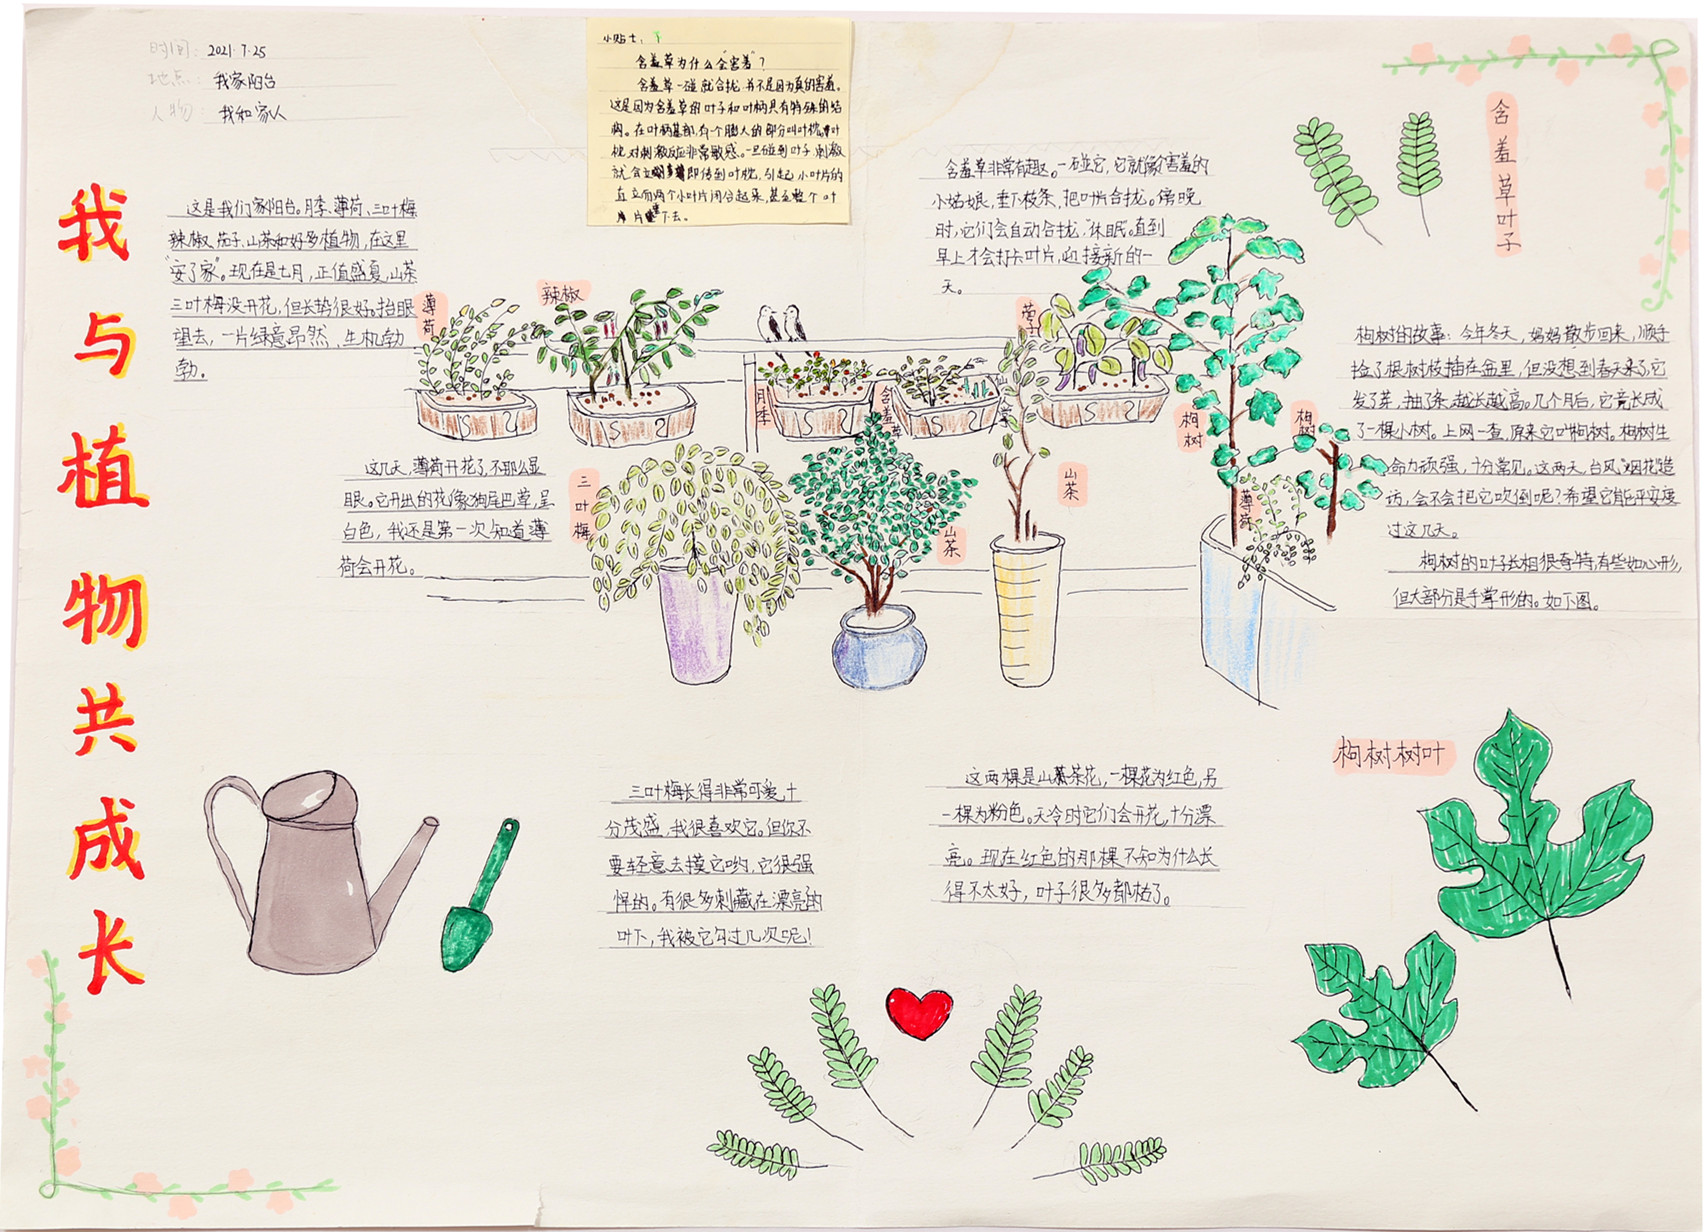 我与植物共成长
时间：2021.7.25
地点：我家阳台
人物 我和家人
小贴士：
含羞草为什么会“害羞”？
含羞草一碰就合拢，并不是因为真的害羞。
这是因为含羞草的叶子和叶柄具有特殊的结
构。在叶柄基部，有一个膨大的部分叫叶枕，叶
枕对刺激反应非常敏感。一旦碰到叶子，刺激
就会立即传到叶枕，引起小叶片的
直立而两个小叶片闭合起来，甚至整个叶
片下去。
这是我们家阳台。月季、薄荷、三叶梅
辣椒、茄子、山茶和好多植物，在这里
“安了家”。现在是七月，正值盛夏，山茶
三叶梅没开花，但长势很好。抬眼
望去，一片绿意昂然、生机勃
勃。
含羞草非常有趣。一碰它，它就像个害羞的
小姑娘，垂下枝条，把叶片合拢。傍晚
时，它们会自动合拢，“休眠”。直到
早上才会打开叶片，迎接新的一
天。
含羞草叶子
构树的故事：今年冬天，妈妈散步回来，顺手
捡了根树枝插在盆里，但没想到春天来了，它
发了芽，抽了条，越长越高。几个月后，它竟长成
了一棵小树。上网一查，原来它叫构树。构树生
命力顽强，十分常见。这两天，台风“烟花”造
访，会不会把它吹倒呢？希望它能平安度
过这几天。
构树的叶子长相很奇特，有些如心形，
但大部分是手掌形的。如下图。
薄荷
辣椒
月季
含羞草
茄子
构树
构树
薄荷
三叶梅
山茶
山茶
这几天，薄荷开花了，不那么显
眼。它开出的花像狗尾巴草，呈
白色，我还是第一次知道薄
荷会开花。
三叶梅长得非常可爱，十
分茂盛，我很喜欢它。但你不
要轻意去摸它哟，它很强
悍的。有很多刺藏在漂亮的
叶下，我被它勾过几次呢！
这两棵是山茶花，一棵花为红色，另
一棵为粉色。天冷时它们会开花，十分漂
亮。现在红色的那棵不知为什么长
得不太好，叶子很多都枯了。
构树树叶